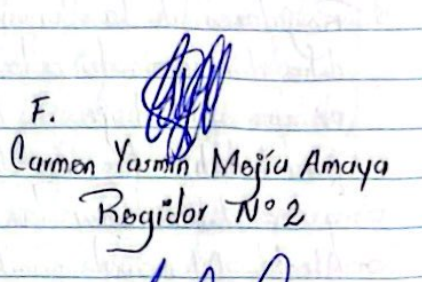 F.
Carmen Yasmín Mejía Amaya
Regidor N° 2